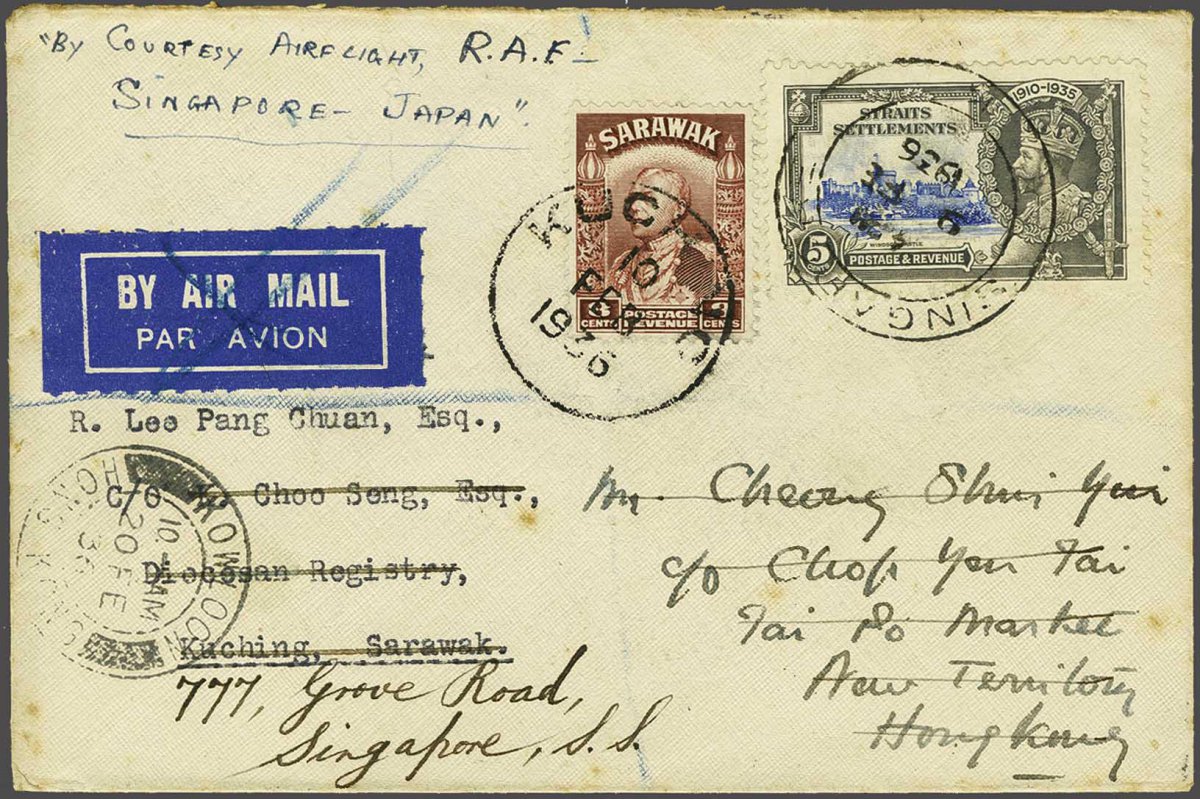 "BY COURTESY AIRFLIGHT, R.A.F.
SINGAPORE - JAPAN".
SARAWAK
CENTS POSTAGE CENTS
REVENUE
KUCHING
10
FEB
1936
1910-1935
STRAITS
SETTLEMENTS
WINDSOR CASTLE
5
CENTS
POSTAGE & REVENUE
SINGA
6
1936
BY AIR MAIL
PAR AVION
R. Lee Pang Chuan, Esq.,
C/O Choo Seng, Esq.,
Diocesan Registry,
Kuching, Sarawak.
777, Grove Road,
Singapore, S.S.
KOWLOON
10 AM
20 FE
36
HONG KONG
Mr. Cheong Shui Yui
c/o Chop Yen Tai
Tai Po Market
New Territory
Hong Kong